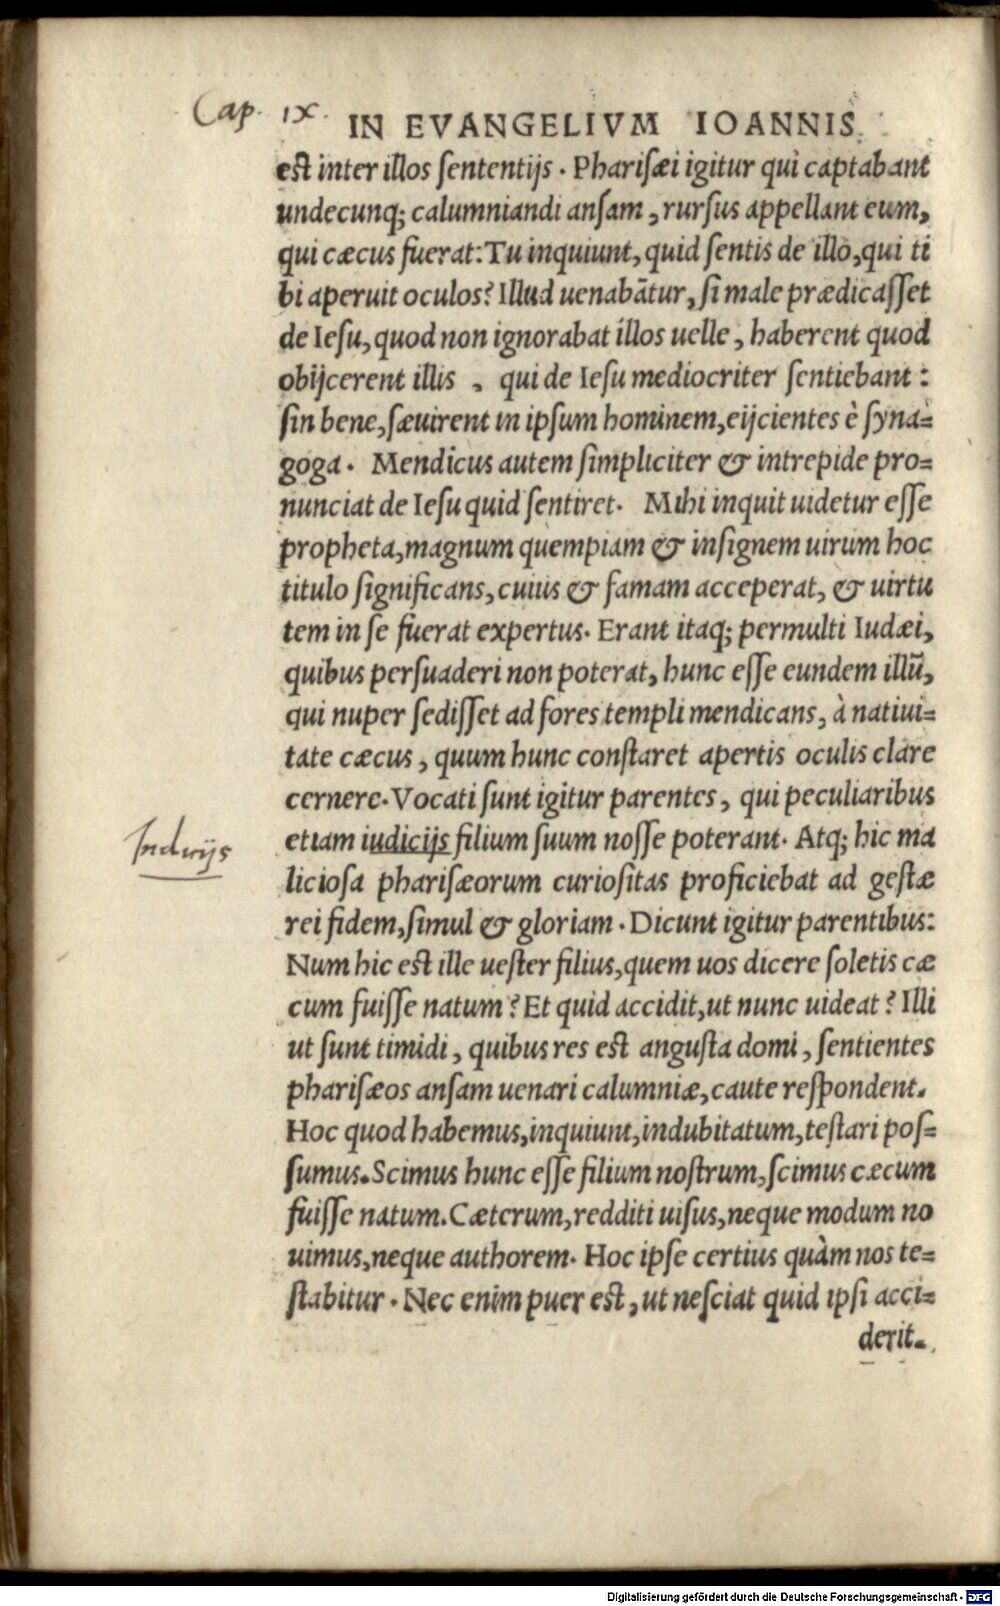 Cap. IX.
IN EVANGELIVM IOANNIS.
est inter illos sententijs. Pharisæi igitur qui captabant
undecunq; calumniandi ansam, rursus appellant eum,
qui cæcus fuerat: Tu inquiunt, quid sentis de illo, qui ti
bi aperuit oculos? Illud uenabātur, si male prædicasset
de Iesu, quod non ignorabat illos uelle, haberent quod
obijcerent illis, qui de Iesu mediocriter sentiebant:
sin bene, sæuirent in ipsum hominem, eijcientes è syna-
goga. Mendicus autem simpliciter & intrepide pro-
nunciat de Iesu quid sentiret. Mihi inquit uidetur esse
propheta, magnum quempiam & insignem uirum hoc
titulo significans, cuius & famam acceperat, & uirtu
tem in se fuerat expertus. Erant itaq; permulti Iudæi,
quibus persuaderi non poterat, hunc esse eundem illū,
qui nuper sedisset ad fores templi mendicans, à natiui-
tate cæcus, quum hunc constaret apertis oculis clare
cernere. Vocati sunt igitur parentes, qui peculiaribus
etiam iudicijs filium suum nosse poterant. Atq; hic ma
Indicijs
liciosa pharisæorum curiositas proficiebat ad gestæ
rei fidem, simul & gloriam. Dicunt igitur parentibus:
Num hic est ille uester filius, quem uos dicere soletis cæ
cum fuisse natum? Et quid accidit, ut nunc uideat? Illi
ut sunt timidi, quibus res est angusta domi, sentientes
pharisæos ansam uenari calumniæ, caute respondent.
Hoc quod habemus, inquiunt, indubitatum, testari pos-
sumus. Scimus hunc esse filium nostrum, scimus cæcum
fuisse natum. Cæterum, redditi uisus, neque modum no
uimus, neque authorem. Hoc ipse certius quàm nos te-
stabitur. Nec enim puer est, ut nesciat quid ipsi acci-
derit.
Digitalisierung gefördert durch die Deutsche Forschungsgemeinschaft - DFG